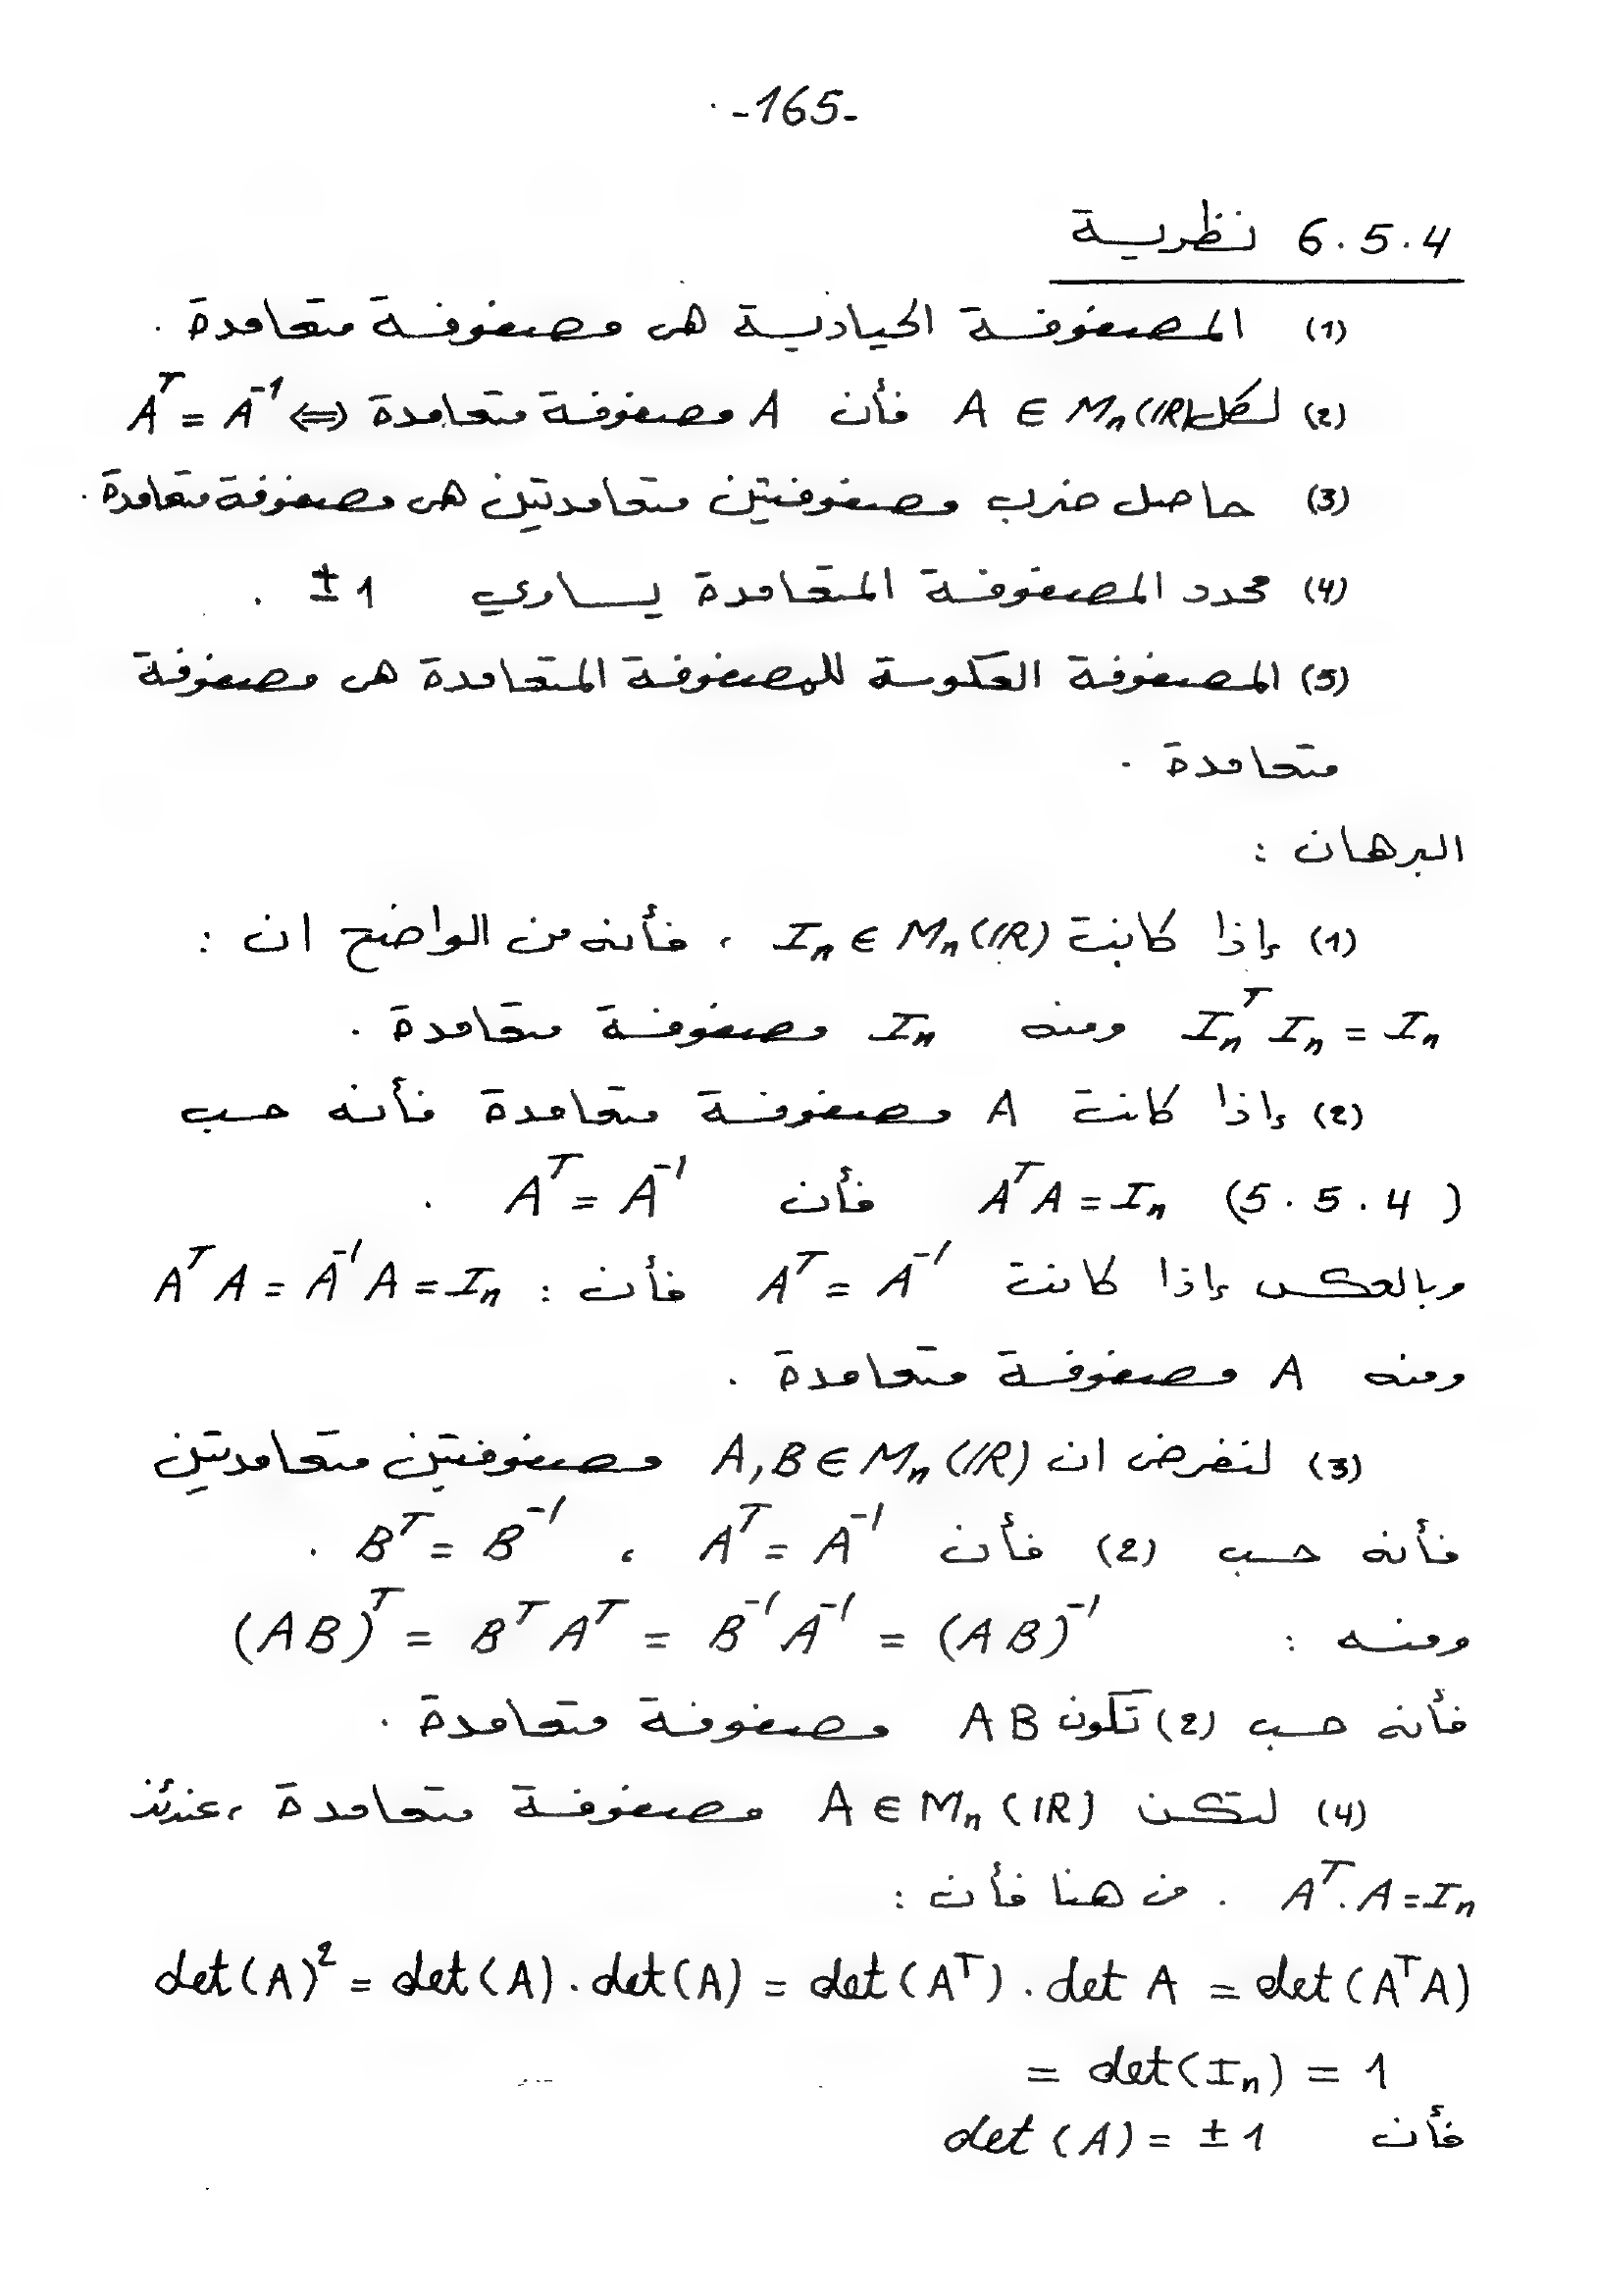 -165-
6.5.4 نظرية
(1) المصفوفة الحيادية هي مصفوفة متعامدة .
(2) لكل A ∈ Mₙ(IR) فأن A مصفوفة متعامدة ⇔ Aᵀ = A⁻¹
(3) حاصل ضرب مصفوفتين متعامدتين هي مصفوفة متعامدة .
(4) محدد المصفوفة المتعامدة يساوي ±1 .
(5) المصفوفة العكوسة للمصفوفة المتعامدة هي مصفوفة
متعامدة .
البرهان :
(1) إذا كانت Iₙ ∈ Mₙ(IR) ، فأنه من الواضح ان :
Iₙᵀ Iₙ = Iₙ ومنه Iₙ مصفوفة متعامدة .
(2) إذا كانت A مصفوفة متعامدة فأنه حسب
(5.5.4) AᵀA = Iₙ فأن Aᵀ = A⁻¹ .
وبالعكس إذا كانت Aᵀ = A⁻¹ فأن : AᵀA = A⁻¹A = Iₙ
ومنه A مصفوفة متعامدة .
(3) لنفرض ان A,B ∈ Mₙ(IR) مصفوفتين متعامدتين
فأنه حسب (2) فأن Aᵀ = A⁻¹ ، Bᵀ = B⁻¹ .
ومنه : (AB)ᵀ = BᵀAᵀ = B⁻¹A⁻¹ = (AB)⁻¹
فأنه حسب (2) تكون AB مصفوفة متعامدة .
(4) لتكن A ∈ Mₙ(IR) مصفوفة متعامدة ، عندئذ
Aᵀ.A = Iₙ . من هنا فأن :
det(A)² = det(A).det(A) = det(Aᵀ).det A = det(AᵀA)
= det(Iₙ) = 1
فأن det(A) = ±1